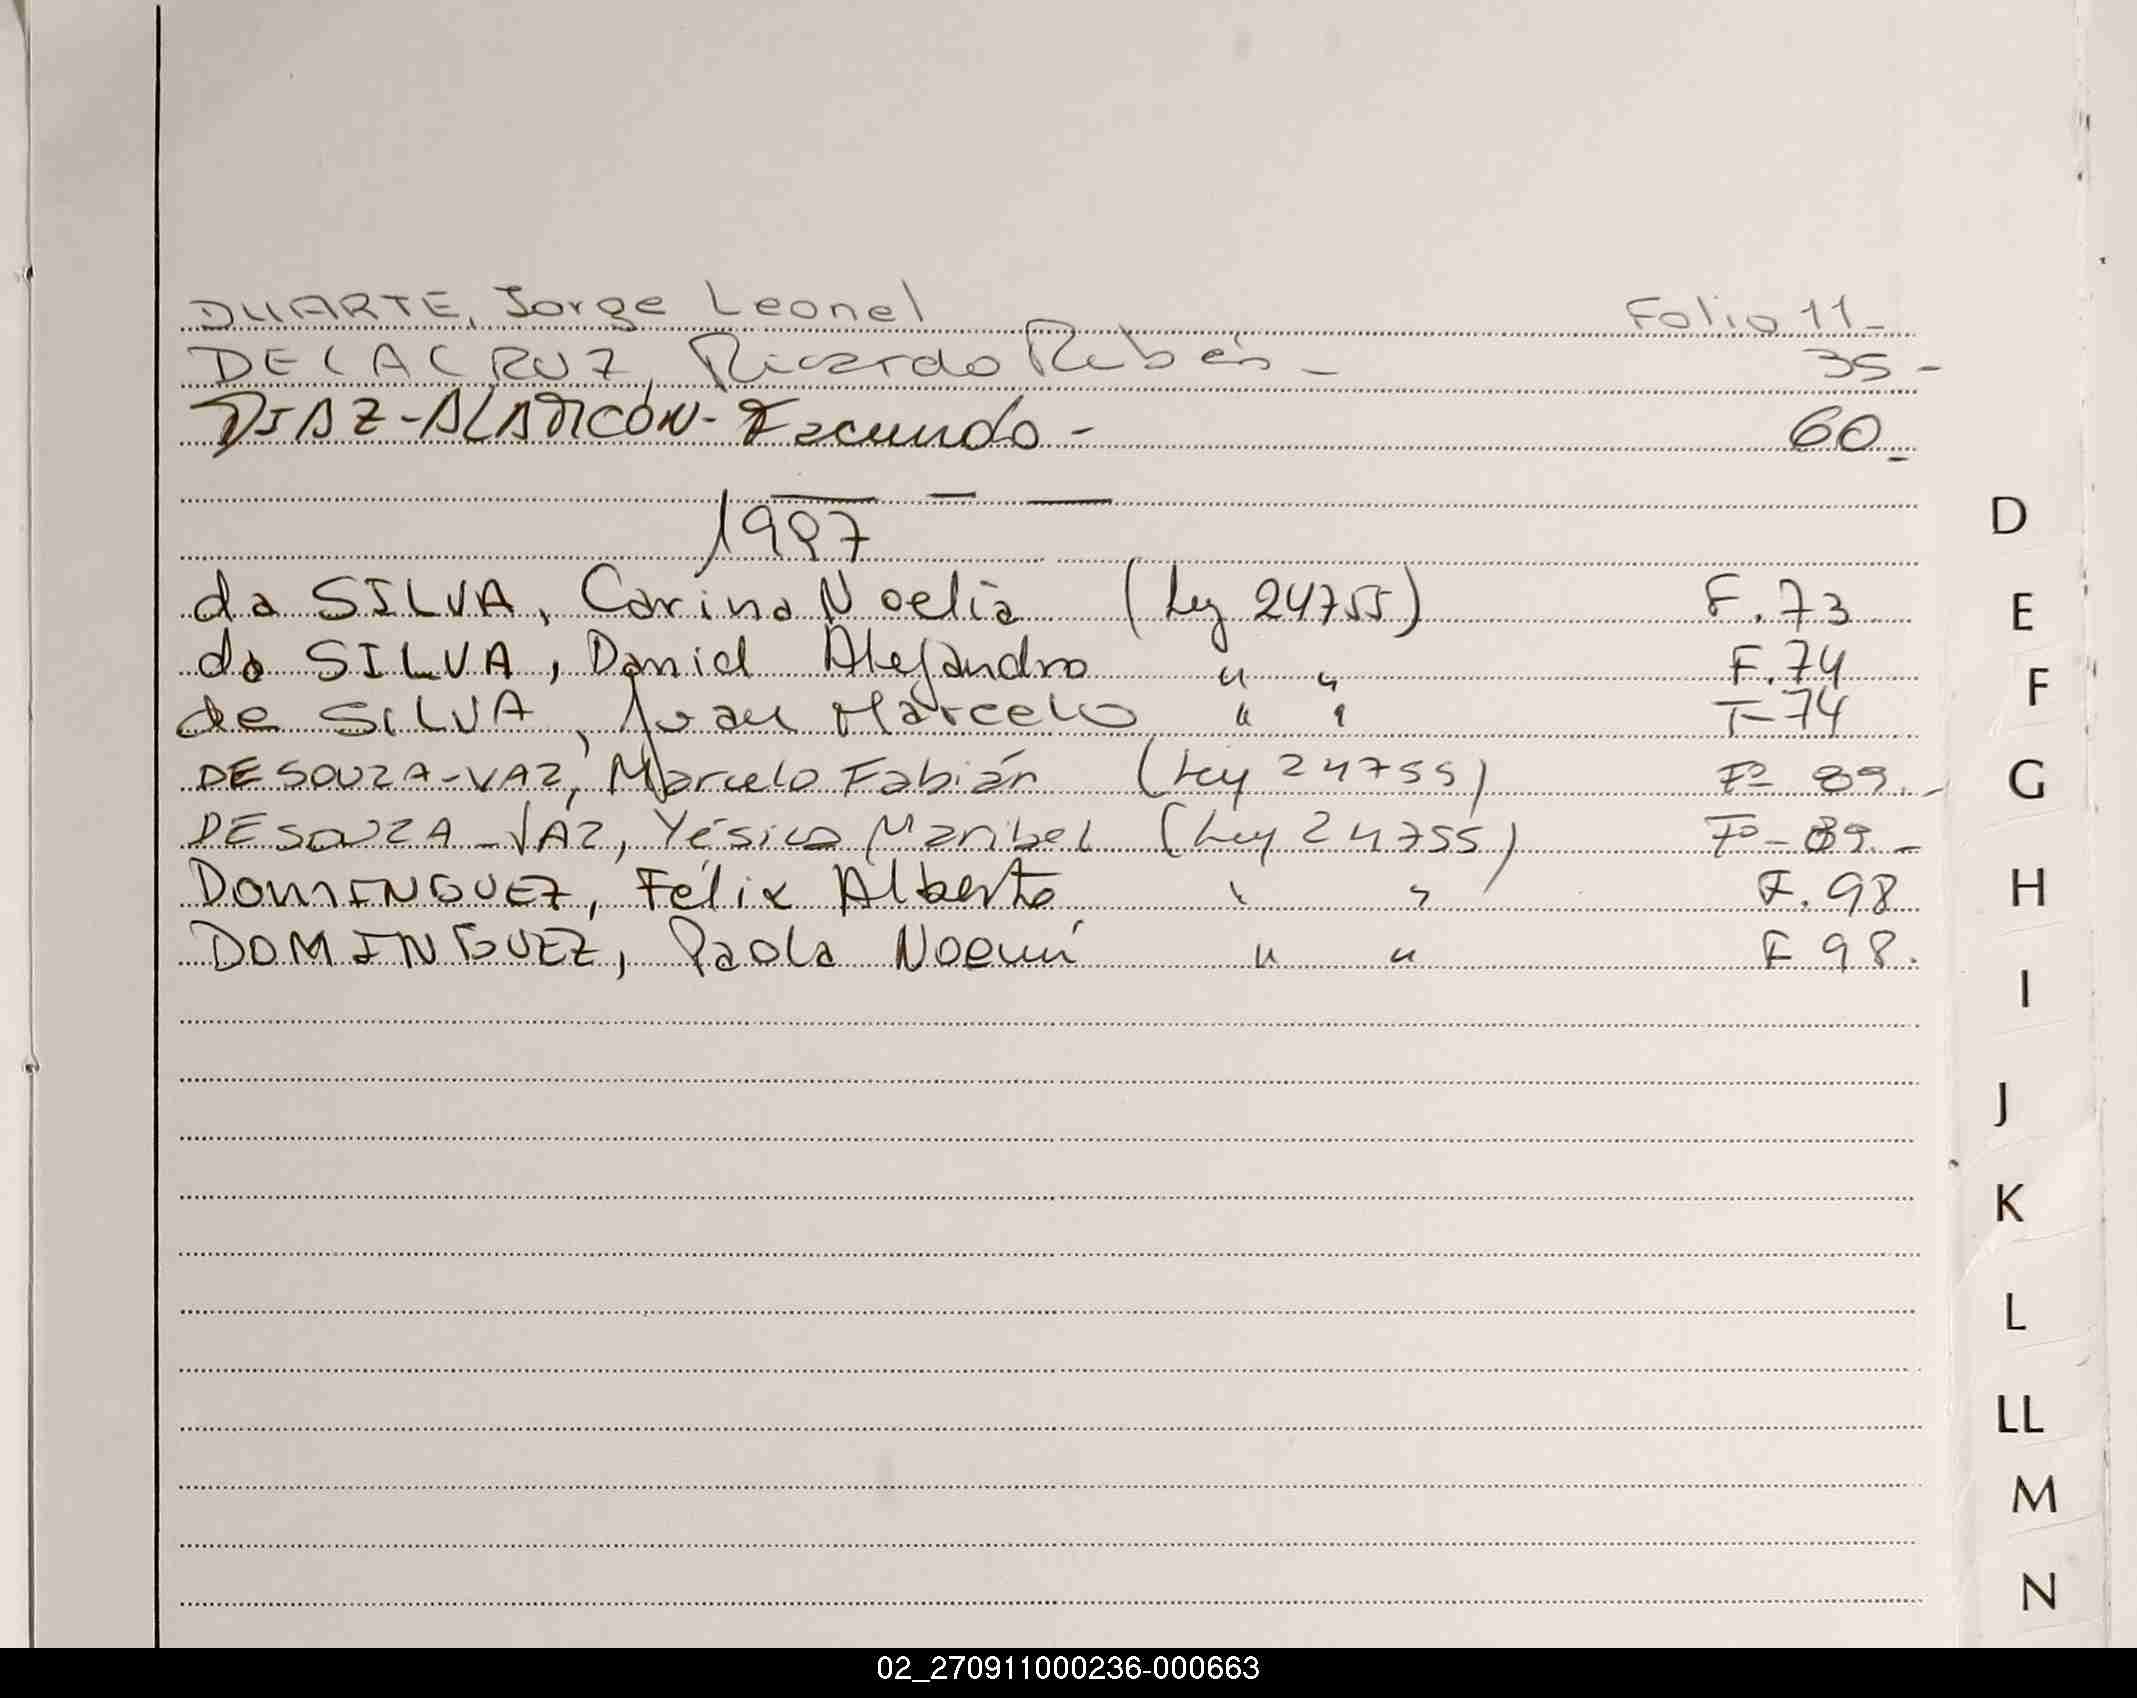 DUARTE, Jorge Leonel Folio 11-
DELACRUZ, Ricardo Rubén - 35-
DIAZ-ALARCÓN-Facundo- 60-
1997
da SILVA, Carina Noelia (Ley 24755) F.73
da SILVA, Daniel Alejandro " " F.74
de SILVA, Juan Marcelo " " F-74
DE SOUZA-VAZ, Marcelo Fabián (Ley 24755) Fº 89.-
DE SOUZA-VAZ, Yésica Maribel (Ley 24755) Fº-89.-
DOMINGUEZ, Félix Alberto " " F.98
DOMINGUEZ, Paola Noemí " " F 98.
D
E
F
G
H
I
J
K
L
LL
M
N
02_270911000236-000663